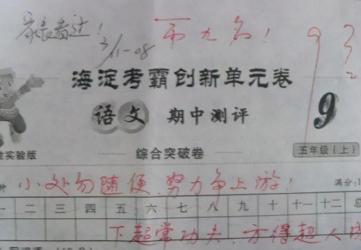 家长看过! 3/11-08 第九名!
海淀考霸创新单元卷
语文 期中测评 9
实验版 综合突破卷 五年级(上)
小处勿随便,努力争上游!
一 二 三 四 五 六 七 八 九 十 十一 十二 总
下超常功夫 方得超人